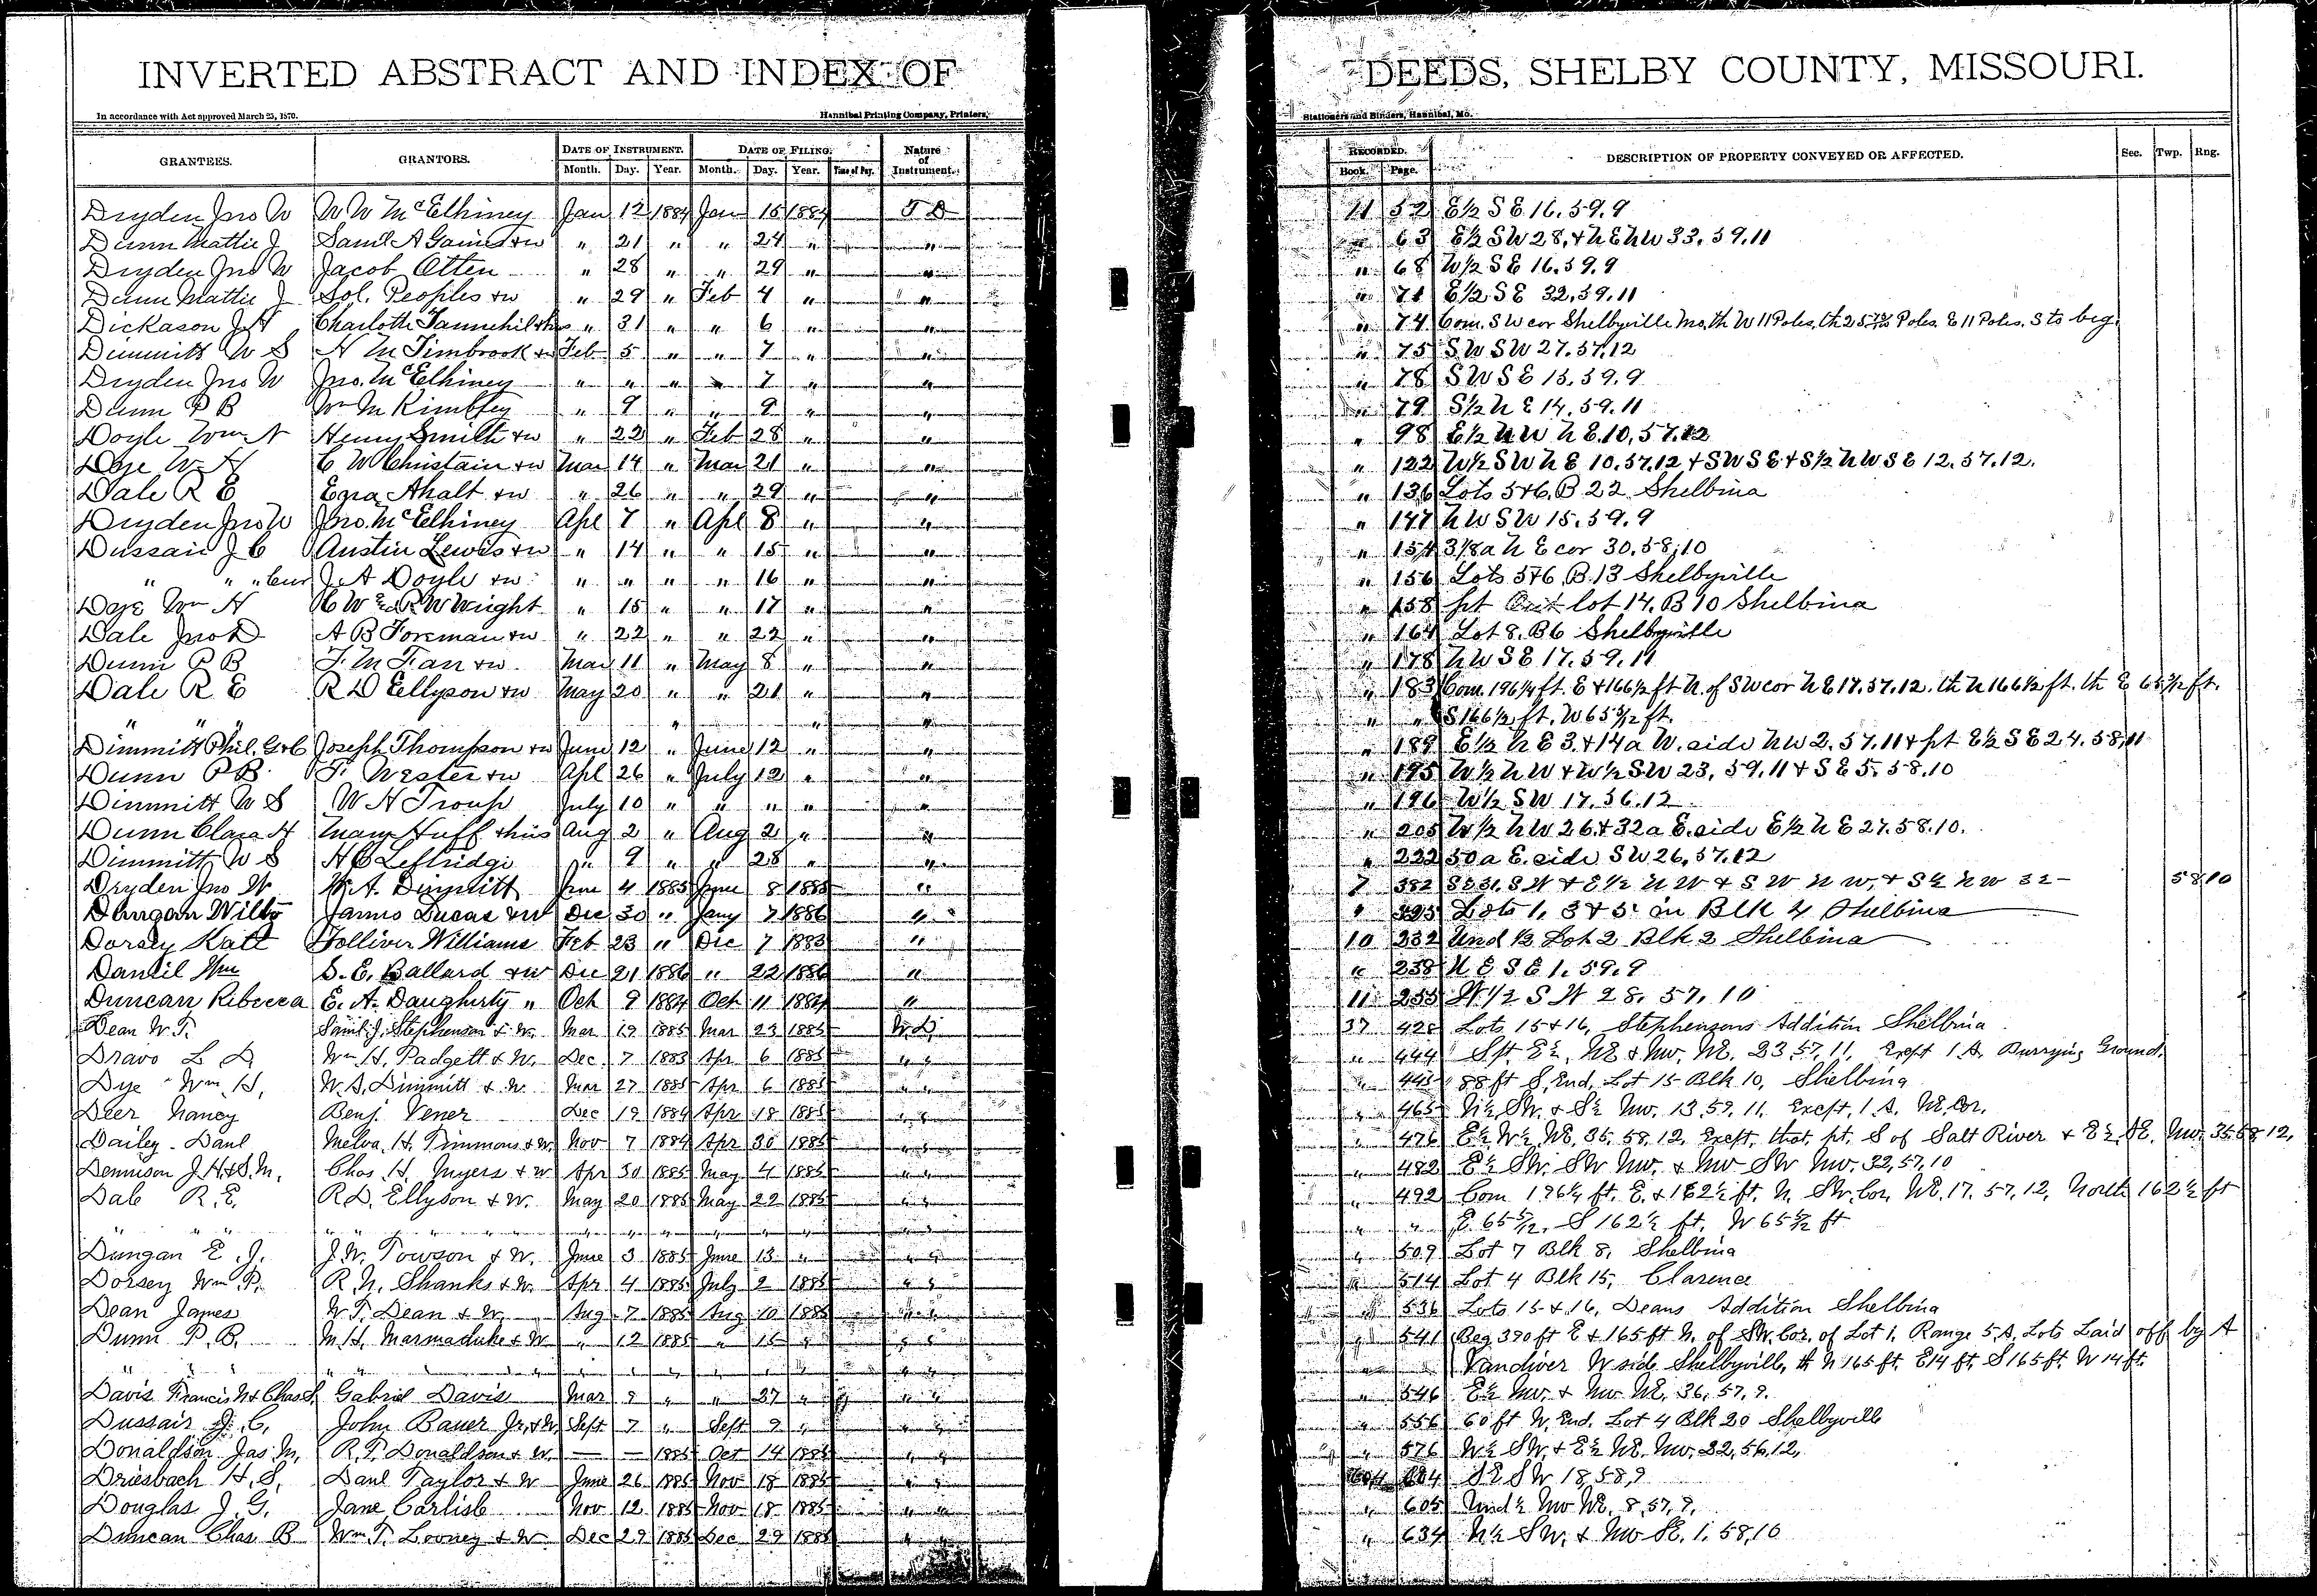 INVERTED ABSTRACT AND INDEX OF DEEDS, SHELBY COUNTY, MISSOURI.
In accordance with Act approved March 25, 1870. Hannibal Printing Company, Printers, Stationers and Binders, Hannibal, Mo.
GRANTEES. GRANTORS. DATE OF INSTRUMENT. DATE OF FILING. Nature of Instrument. RECORDED. DESCRIPTION OF PROPERTY CONVEYED OR AFFECTED. Sec. Twp. Rng.
Month. Day. Year. Month. Day. Year. Time of Day. Book. Page.
Dryden Jno W W W McElhiney Jan 12 1884 Jan 15 1884 T D 11 52 E½ S E 16.59.9
Dunn Mattie J Saml A Gaines & w " 21 " " 24 " " " 63 E½ SW 28, & N E N W 33, 59.11
Dryden Jno W Jacob Otten " 28 " " 29 " " " 68 W½ S E 16.59.9
Dunn Mattie J Sol. Peoples & w " 29 " Feb 4 " " " 71 E½ S E 32,59.11
Dickason J H Charlotte Tannehill & hus " 31 " " 6 " " " 74 Com. S W cor Shelbyville Mo. th W 11 Poles, Poles. E 11 Poles. S to beg.
Dimmitt W S H M Timbrook & w Feb 5 " " 7 " " " 75 S W S W 27.57.12
Dryden Jno W Jno. McElhiney " " " " 7 " " " 78 S W S E 15.59.9
Dunn P B Wm M Kimbley " 9 " " 9 " " " 79 S½ N E 14.59.11
Doyle Wm N Henry Smith & w " 22 " Feb 28 " " " 98 E½ N W N E 10,57.12
Doje W H C W Christain & w Mar 14 " Mar 21 " " " 122 W½ S W N E 10.57.12 & S W S E & S½ N W S E 12.57.12.
Dale R E Ezra Ahalt & w " 26 " " 29 " " " 136 Lots 5&6, B 22 Shelbina
Dryden Jno W Jno. McElhiney Apl 7 " Apl 8 " " " 147 N W S W 15.59.9
Dussair J C Austin Lewis & w " 14 " " 15 " " " 154 3⅛ a N E cor 30.58.10
" " " J. A Doyle & w " " " " 16 " " " 156 Lots 5&6, B.13 Shelbyville
Doje Wm H C W & R W Wright " 15 " " 17 " " " 158 pt Out lot 14, B 10 Shelbina
Dale Jno D A B Foreman & w " 22 " " 22 " " " 164 Lot 8. B6 Shelbyville
Dunn P B F. M Farr & w Mar 11 " May 8 " " " 178 N W S E 17.59.11
Dale R E R D Ellyson & w May 20 " " 21 " " " 183 Com. 196¼ ft. E & 166½ ft N. of S W cor N E 17.57.12. th N 166½ ft. th E 65 5/12 ft.
" " " " " " " S 166½ ft. W 65 5/12 ft.
Dimmitt Phil. G & C Joseph Thompson & w June 12 " June 12 " " " 189 E½ N E 3. & 14 a W. side N W 2. 57.11 & pt E½ S E 24.58.11
Dunn P B F. Wester & w Apl 26 " July 12 " " " 195 W½ N W & W½ S W 23, 59.11 & S E 5.58.10
Dimmitt W S W H Troup July 10 " " " " " " 196 W½ S W 17.56.12
Dunn Clara H Mary Huff & hus Aug 2 " Aug 2 " " " 205 W½ N W 26. & 32 a E. side E½ N E 27.58.10.
Dimmitt W S H C Leftridge " 9 " " 28 " " " 222 50 a E. side S W 26,57.12
Dryden Jno W W. A. Dimmitt June 4 1885 June 8 1885 " 7 382 S W & E½ N W & S W N W, & S½ N W 32 58 10
Dungan Willo James Lucas & w Dec 30 " Jany 7 1886 " " 395 Lots 1, 3 & 5 in Blk 4 Shelbina
Dorsey Katt Tolliver Williams Feb 23 " Dec 7 1883 " 10 232 Und ½ Lot 2 Blk 2 Shelbina
Daniel Wm S. E. Ballard & w Dec 21 1886 " 22 1886 " " 238 N E S E 1.59.9
Duncan Rebecca E. A. Daugherty " Oct 9 1884 Oct 11 1884 " 11 255 W½ S W 28, 57, 10
Dean W. T. Saml. J. Stephenson & W. Mar 19 1885 Mar 23 1885 W. D. 37 428 Lots 15 & 16, Stephensons Addition Shelbina
Dravo L D Wm H. Padgett & W. Dec. 7 1883 Apr 6 1885 " " " 444 S pt. E½, NE & NW. NE. 23.57.11. Exept 1 A. Burrying Ground.
Dye Wm H. W. S. Dimmitt & W. Mar 27 1885 Apr 6 1885 " " " 445 88 ft S. End, Lot 15 Blk 10, Shelbina
Deer Nancy Benj. Vener Dec 19 1884 Apr 18 1885 " " " 465 N½ SW. & S½ NW. 13,59,11, Except, 1 A. NE Cor.
Dailey Danl Melva. H. Timmons & W. Nov 7 1884 Apr 30 1885 " " " 476 E½ W½ NE. 35.58.12, Exept. that. pt. S of Salt River & E½ SE. NW. 35 58 12,
Dennison J. H. & S. M. Chas H. Myers & W Apr 30 1885 May 4 1885 " " " 482 E½ SW. SW NW. & NW SW NW. 32,57,10
Dale R. E. R. D. Ellyson & W. May 20 1885 May 22 1885 " " " 492 Com 196¼ ft. E. & 162½ ft. N. SW. Cor. NE. 17. 57, 12, North 162½ ft
" " " " " " " " " " " " E. 65 5/12. S 162½ ft. W 65 5/12 ft
Dungan E. J. J. W. Towson & W. June 3 1885 June 13 " " " " 509 Lot 7 Blk 8, Shelbina
Dorsey Wm P. R. N. Shanks & W. Apr 4 1885 July 2 1885 " " " 514 Lot 4 Blk 15, Clarence
Dean James W. T. Dean & W. Aug 7 1885 Aug 10 1885 " " " 536 Lots 15 & 16, Deans Addition Shelbina
Dunn P. B. M. H. Marmaduke & W " 12 1885 " 15 " " " " 541 Beg 390 ft E & 165 ft N. of SW. Cor. of Lot 1. Range 5, A. Lots Laid off by A
" " " " " " " " " " Vandiver W side Shelbyville, th N 165 ft. E 14 ft. S 165 ft. W 14 ft.
Davis Francis N & Chas S. Gabriel Davis Mar 9 " " 27 " " " " 546 E½ NW. & NW NE. 36, 57, 9.
Dussair J. C. John Bauer Jr. & W Sept 7 " Sept 9 " " " " 556 60 ft N. End, Lot 4 Blk 20 Shelbyville
Donaldson Jas M. R. T. Donaldson & W. — — 1885 Oct 14 1885 " " " 576 W½ SW. & E½ NE. NW. 22,56,12,
Driesbach H. S. Danl Taylor & W June 26 1885 Nov 18 1885 " " 604 SE SW 18,58,9
Douglas J. G. Jane Carlisle Nov 12 1885 Nov 18 1885 " " " 605 Und ½ NW NE. 8,57,9,
Duncan Chas B Wm. T. Looney & W Dec 29 1885 Dec 29 1885 " " " 634 N½ SW. & NW SE. 1.58,10